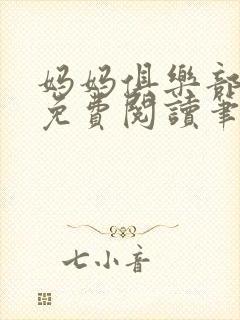 妈妈俱樂部
免費閱讀筆
七小音